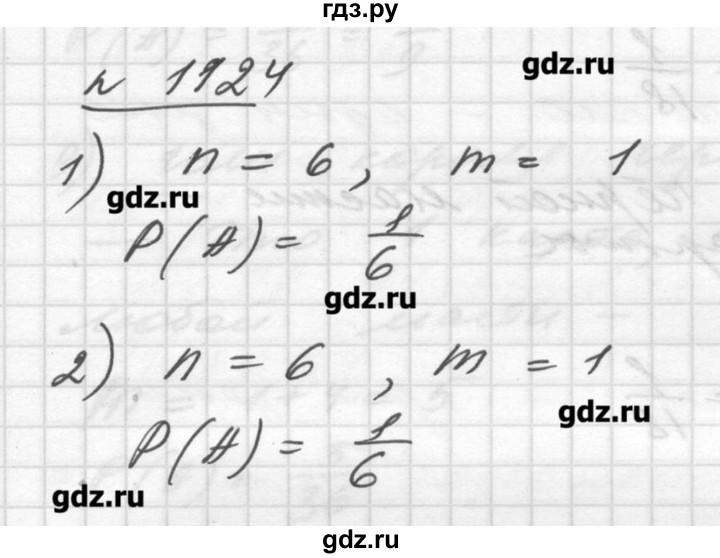 гдз.ру
№ 1124
gdz.ru
1) n = 6, m = 1
gdz.ru
P(A) = 1/6
gdz.ru
2) n = 6, m = 1
gdz.ru
P(A) = 1/6
gdz.ru
gdz.ru